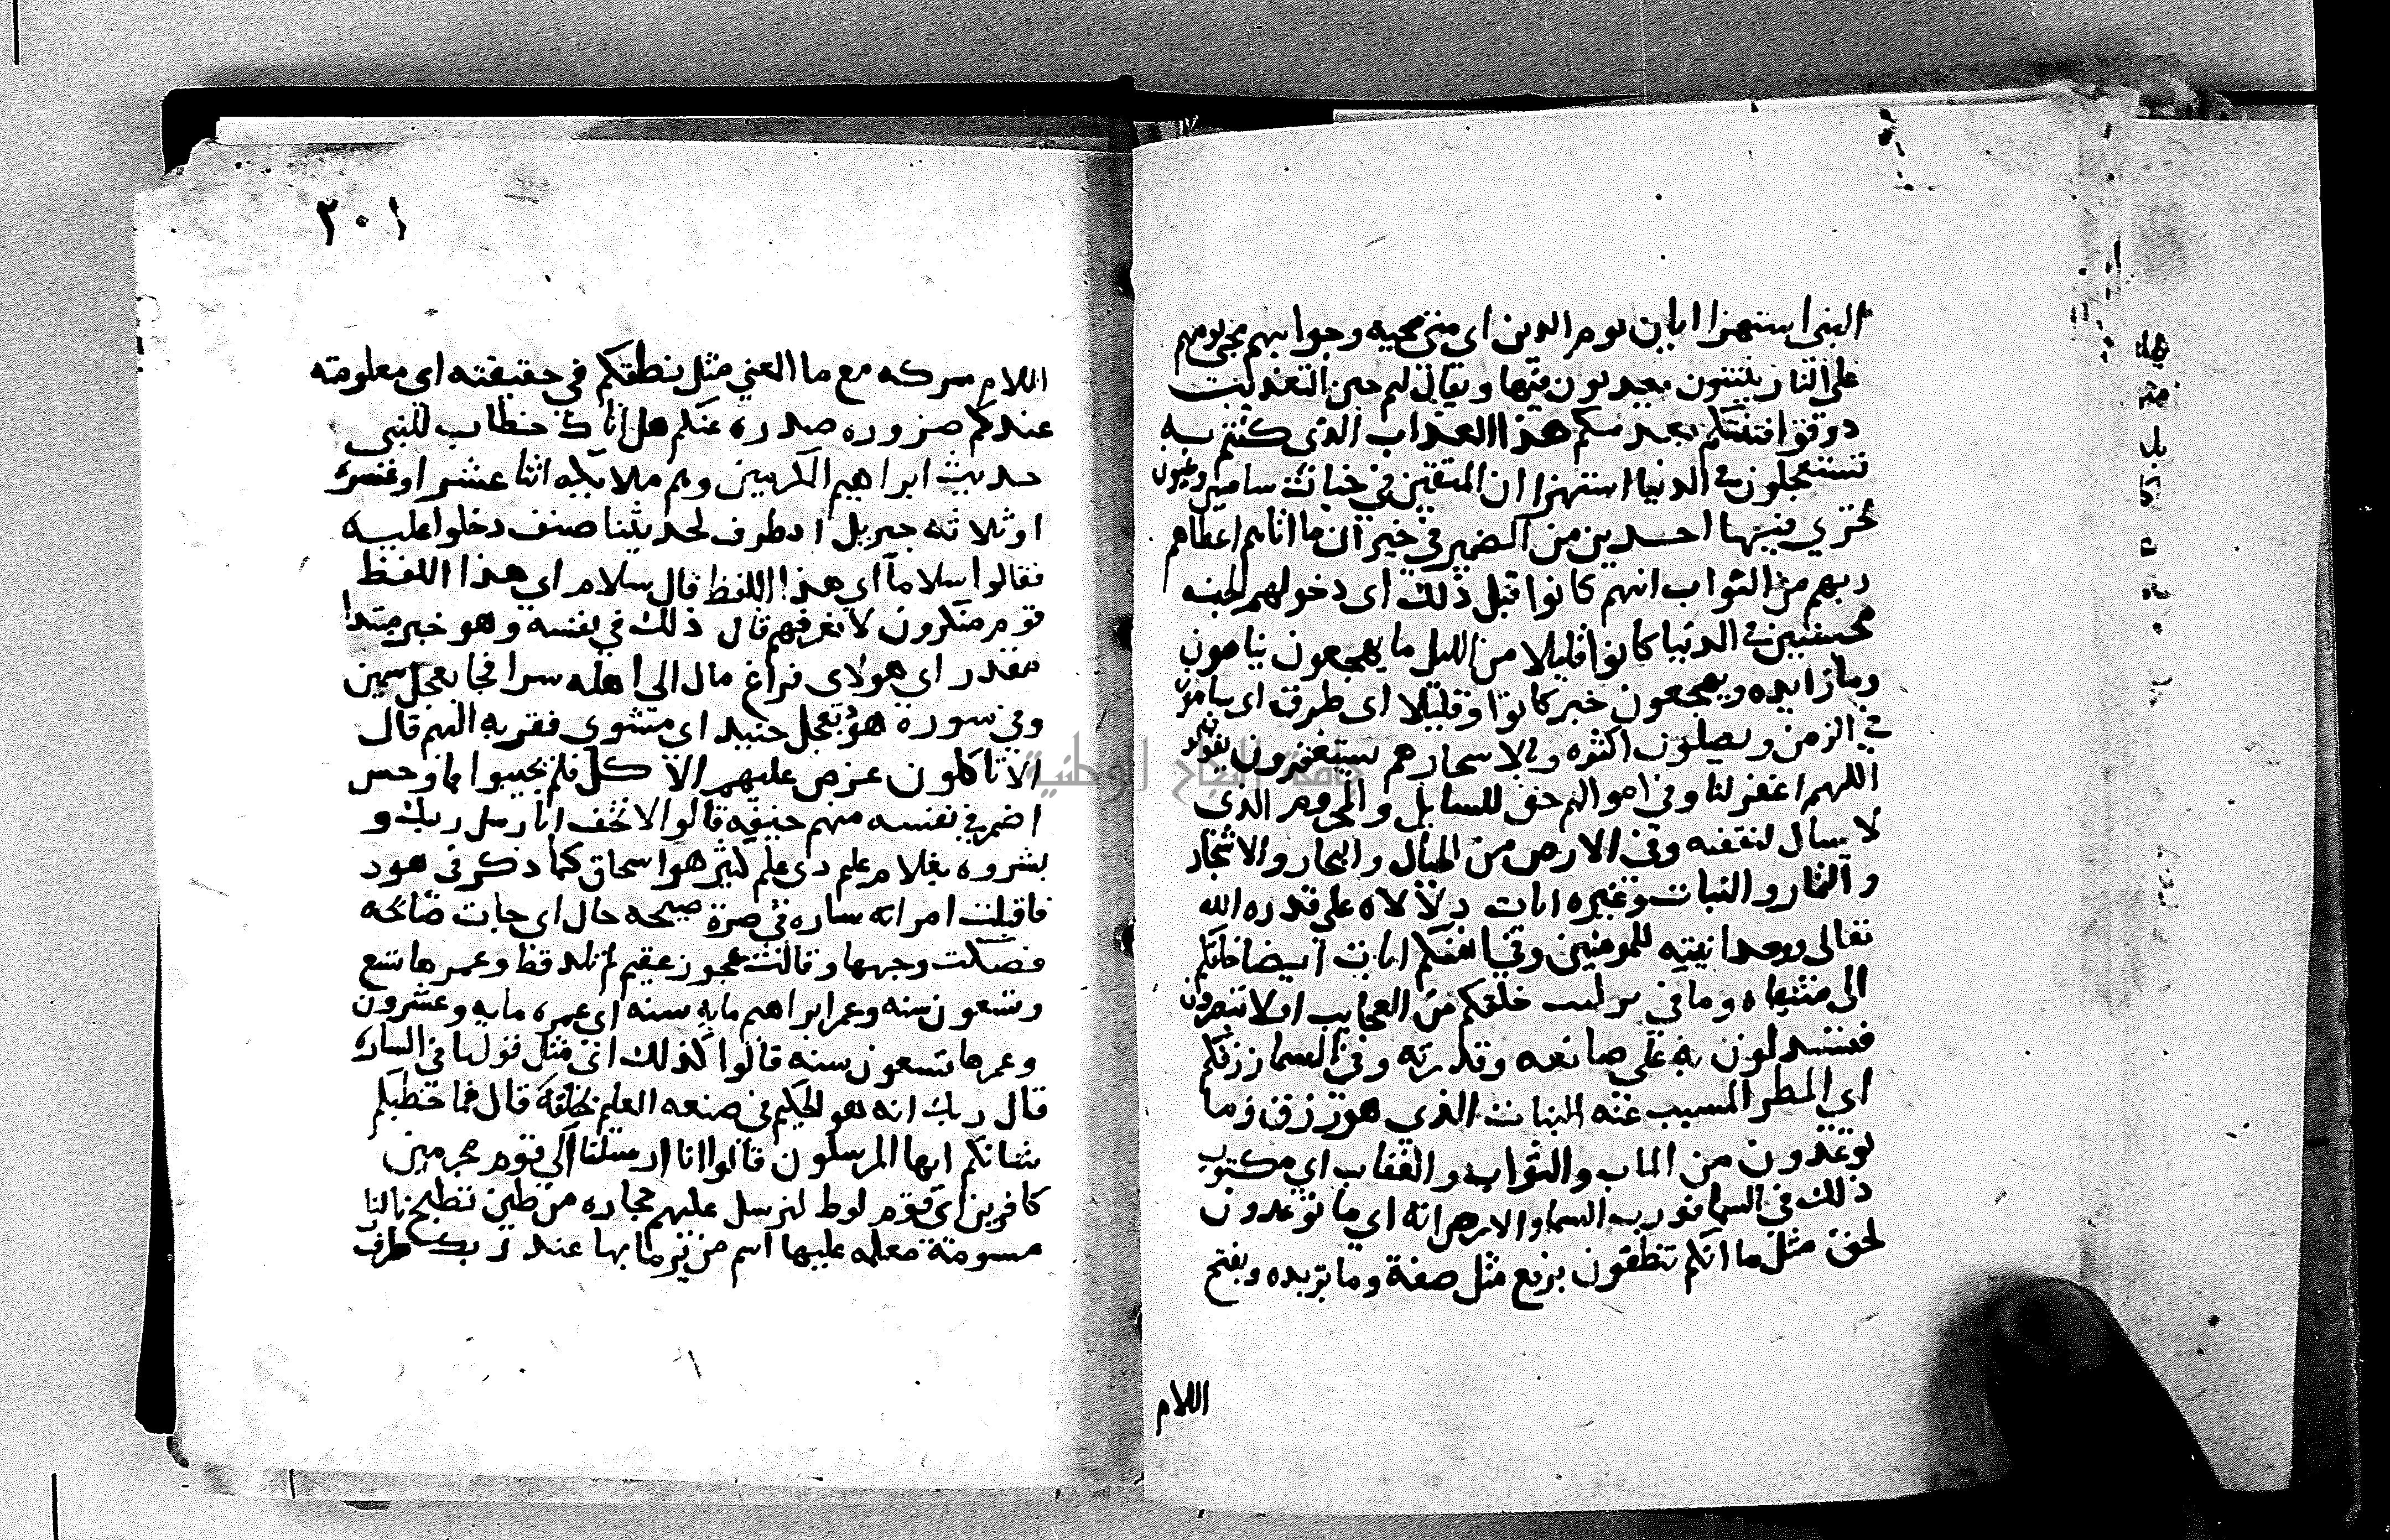 النبي استهزا ايان يوم الدين اي متى مجيه وجوابهم يجي يومهم
على النار يفتنون يعذبون فيها ويقال لهم حين التعذيب
ذوقوا فتنتكم تعذيبكم هذا العذاب الذي كنتم به
تستعجلون في الدنيا استهزا ان المتقين في جنات بساتين وعيون
تجري فيها اخذين من الضمير في خبر ان ما اتاهم اعطاهم
ربهم من الثواب انهم كانوا قبل ذلك اى دخولهم الجنه
محسنين في الدنيا كانوا قليلا من الليل ما يهجعون ينامون
وما زايده ويهجعون خبر كانوا وقليلا اى ظرف اى ينامون
في الزمن ويصلون اكثره وبالاسحار هم يستغفرون يقولون
اللهم اغفر لنا وفي اموالهم حق للسايل والمحروم الذى
لا يسال لتعففه وفي الارض من الجبال والبحار والاشجار
والثمار والنبات وغيره ايات دلالاه على قدره الله
تعالى ووحدانيته للموقنين وفي انفسكم ايات ايضا خلقكم
الى منتهاه وما في تركيب خلقكم من العجايب اولا تبصرون
فتستدلون به على صانعه وقدرته وفي السما رزقكم
اي المطر المسبب عنه النبات الذي هو رزق وما
توعدون من الماب والثواب والعقاب اي مكتوب
ذلك في السما فورب السما والارض انه اي ما توعدون
لحق مثل ما انكم تنطقون برفع مثل صفة وما مزيده وبفتح
اللام
٢٠١
اللام مركبه مع ما المعني مثل نطقكم في حقيقته اى معلومته
عندكم ضروره صدره عنكم هل اتاك خطاب للنبي
حديث ابراهيم المكرمين وهم ملايكه اثنا عشر او عشره
او ثلاثه جبريل اذ ظرف لحديث ضيف دخلوا عليه
فقالوا سلاما اي هذا اللفظ قال سلام اي هذا اللفظ
قوم منكرون لا نعرفهم قال ذلك في نفسه وهو خبر مبتدا
مقدر اي هولاى فراغ مال الى اهله سرا فجا بعجل سمين
وفي سورة هود بعجل حنيذ اى مشوى فقربه اليهم قال
الا تاكلون عرض عليهم الاكل فلم يجيبوا فاوجس
اضمر في نفسه منهم خيفه قالوا لا تخف انا رسل ربك و
بشروه بغلام عليم ذى علم كثير هو اسحاق كما ذكر في هود
فاقبلت امراته ساره في صرة صيحه حال اى جات صائحه
فصكت وجهها وقالت عجوز عقيم لم تلد قط وعمرها تسع
وتسعون سنه وعمر ابراهيم مايه سنه اى عمره مايه وعشرون
وعمرها تسعون سنه قالوا كذلك اى مثل قولنا في البشاره
قال ربك انه هو الحكيم في صنعه العليم بخلقه قال فما خطبكم
شانكم ايها المرسلون قالوا انا ارسلنا الي قوم مجرمين
كافرين اى قوم لوط لنرسل عليهم حجاره من طين تطبخ بالنار
مسومة معلمه عليها اسم من يرما بها عند ربك ظرف